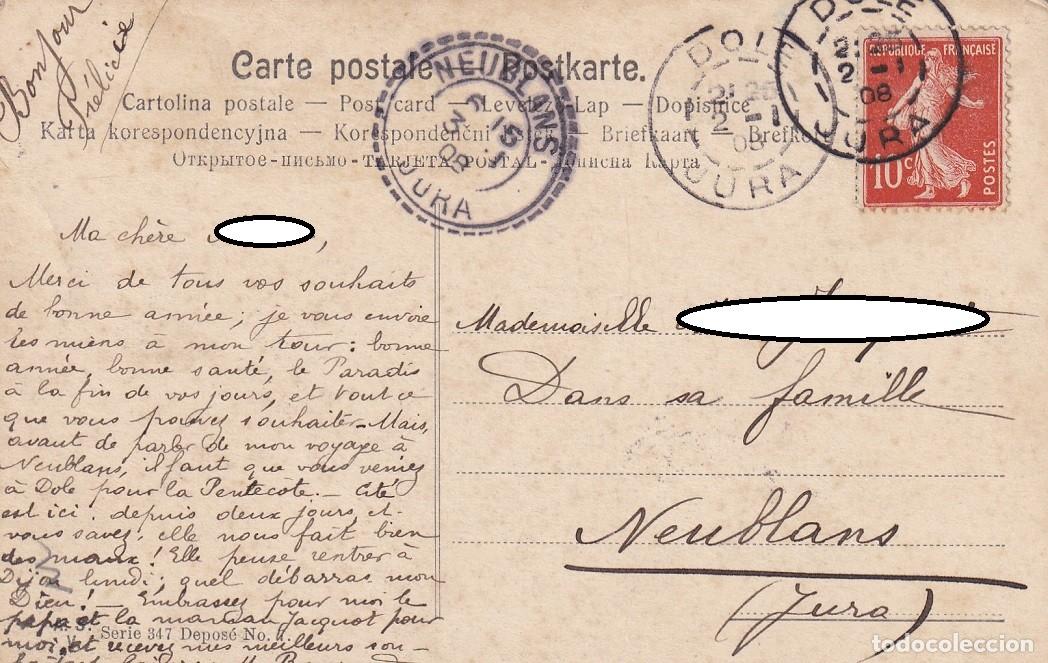 Bonjour
Félicie
Carte postale Postkarte.
Cartolina postale — Post card — Levelező-Lap — Dopisnice
Karta korespondencyjna — Korespondenční lístek — Briefkaart — Brefkort
Открытое-письмо — TARJETA POSTAL — Дописна Карта
NEUBLANS
JURA
DOLE
2 - 1
08
JURA
DOLE
2 - 1
08
JURA
REPUBLIQUE FRANÇAISE
10c
POSTES
Ma chère ,
Merci de tous vos souhaits
de bonne année ; je vous envoie
les miens à mon tour : bonne
année, bonne santé, le Paradis
à la fin de vos jours, et tout ce
que vous pouvez souhaiter — Mais,
avant de parler de mon voyage à
Neublans, il faut que vous veniez
à Dole pour la Pentecôte. —
est ici depuis deux jours, et
vous savez elle nous fait bien
des maux ! Elle pense rentrer à
Dijon lundi ; quel débarras mon
Dieu ! — Embrassez pour moi le
papa et la maman Jacquot pour
moi, et recevez mes meilleurs sou-
Serie 347 Deposé No.
Mademoiselle
Dans sa famille
Neublans
(Jura)
todocoleccion